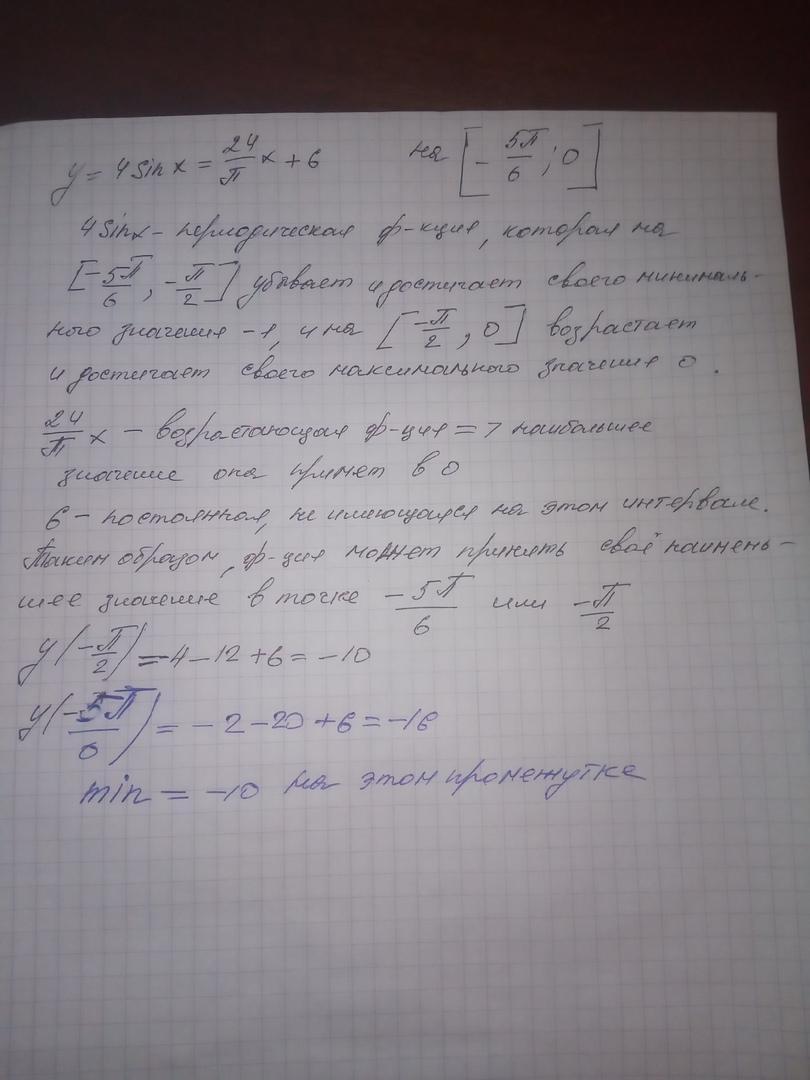 y = 4 sin x = 24/π x + 6 на [- 5π/6 ; 0]
4 sin x - периодическая ф-кция, которая на
[-5π/6 , -π/2] убывает и достигает своего минималь-
ного значения -1, и на [-π/2 , 0] возрастает
и достигает своего максимального значения 0.
24/π x - возрастающая ф-ция => наибольшее
значение она примет в 0
6 - постоянная, не имеющаяся на этом интервале.
Таким образом, ф-ция может принять своё наимень-
шее значение в точке - 5π/6 или -π/2
y(-π/2) = -4 - 12 + 6 = -10
y(-5π/6) = - 2 - 20 + 6 = -16
min = -10 на этом промежутке